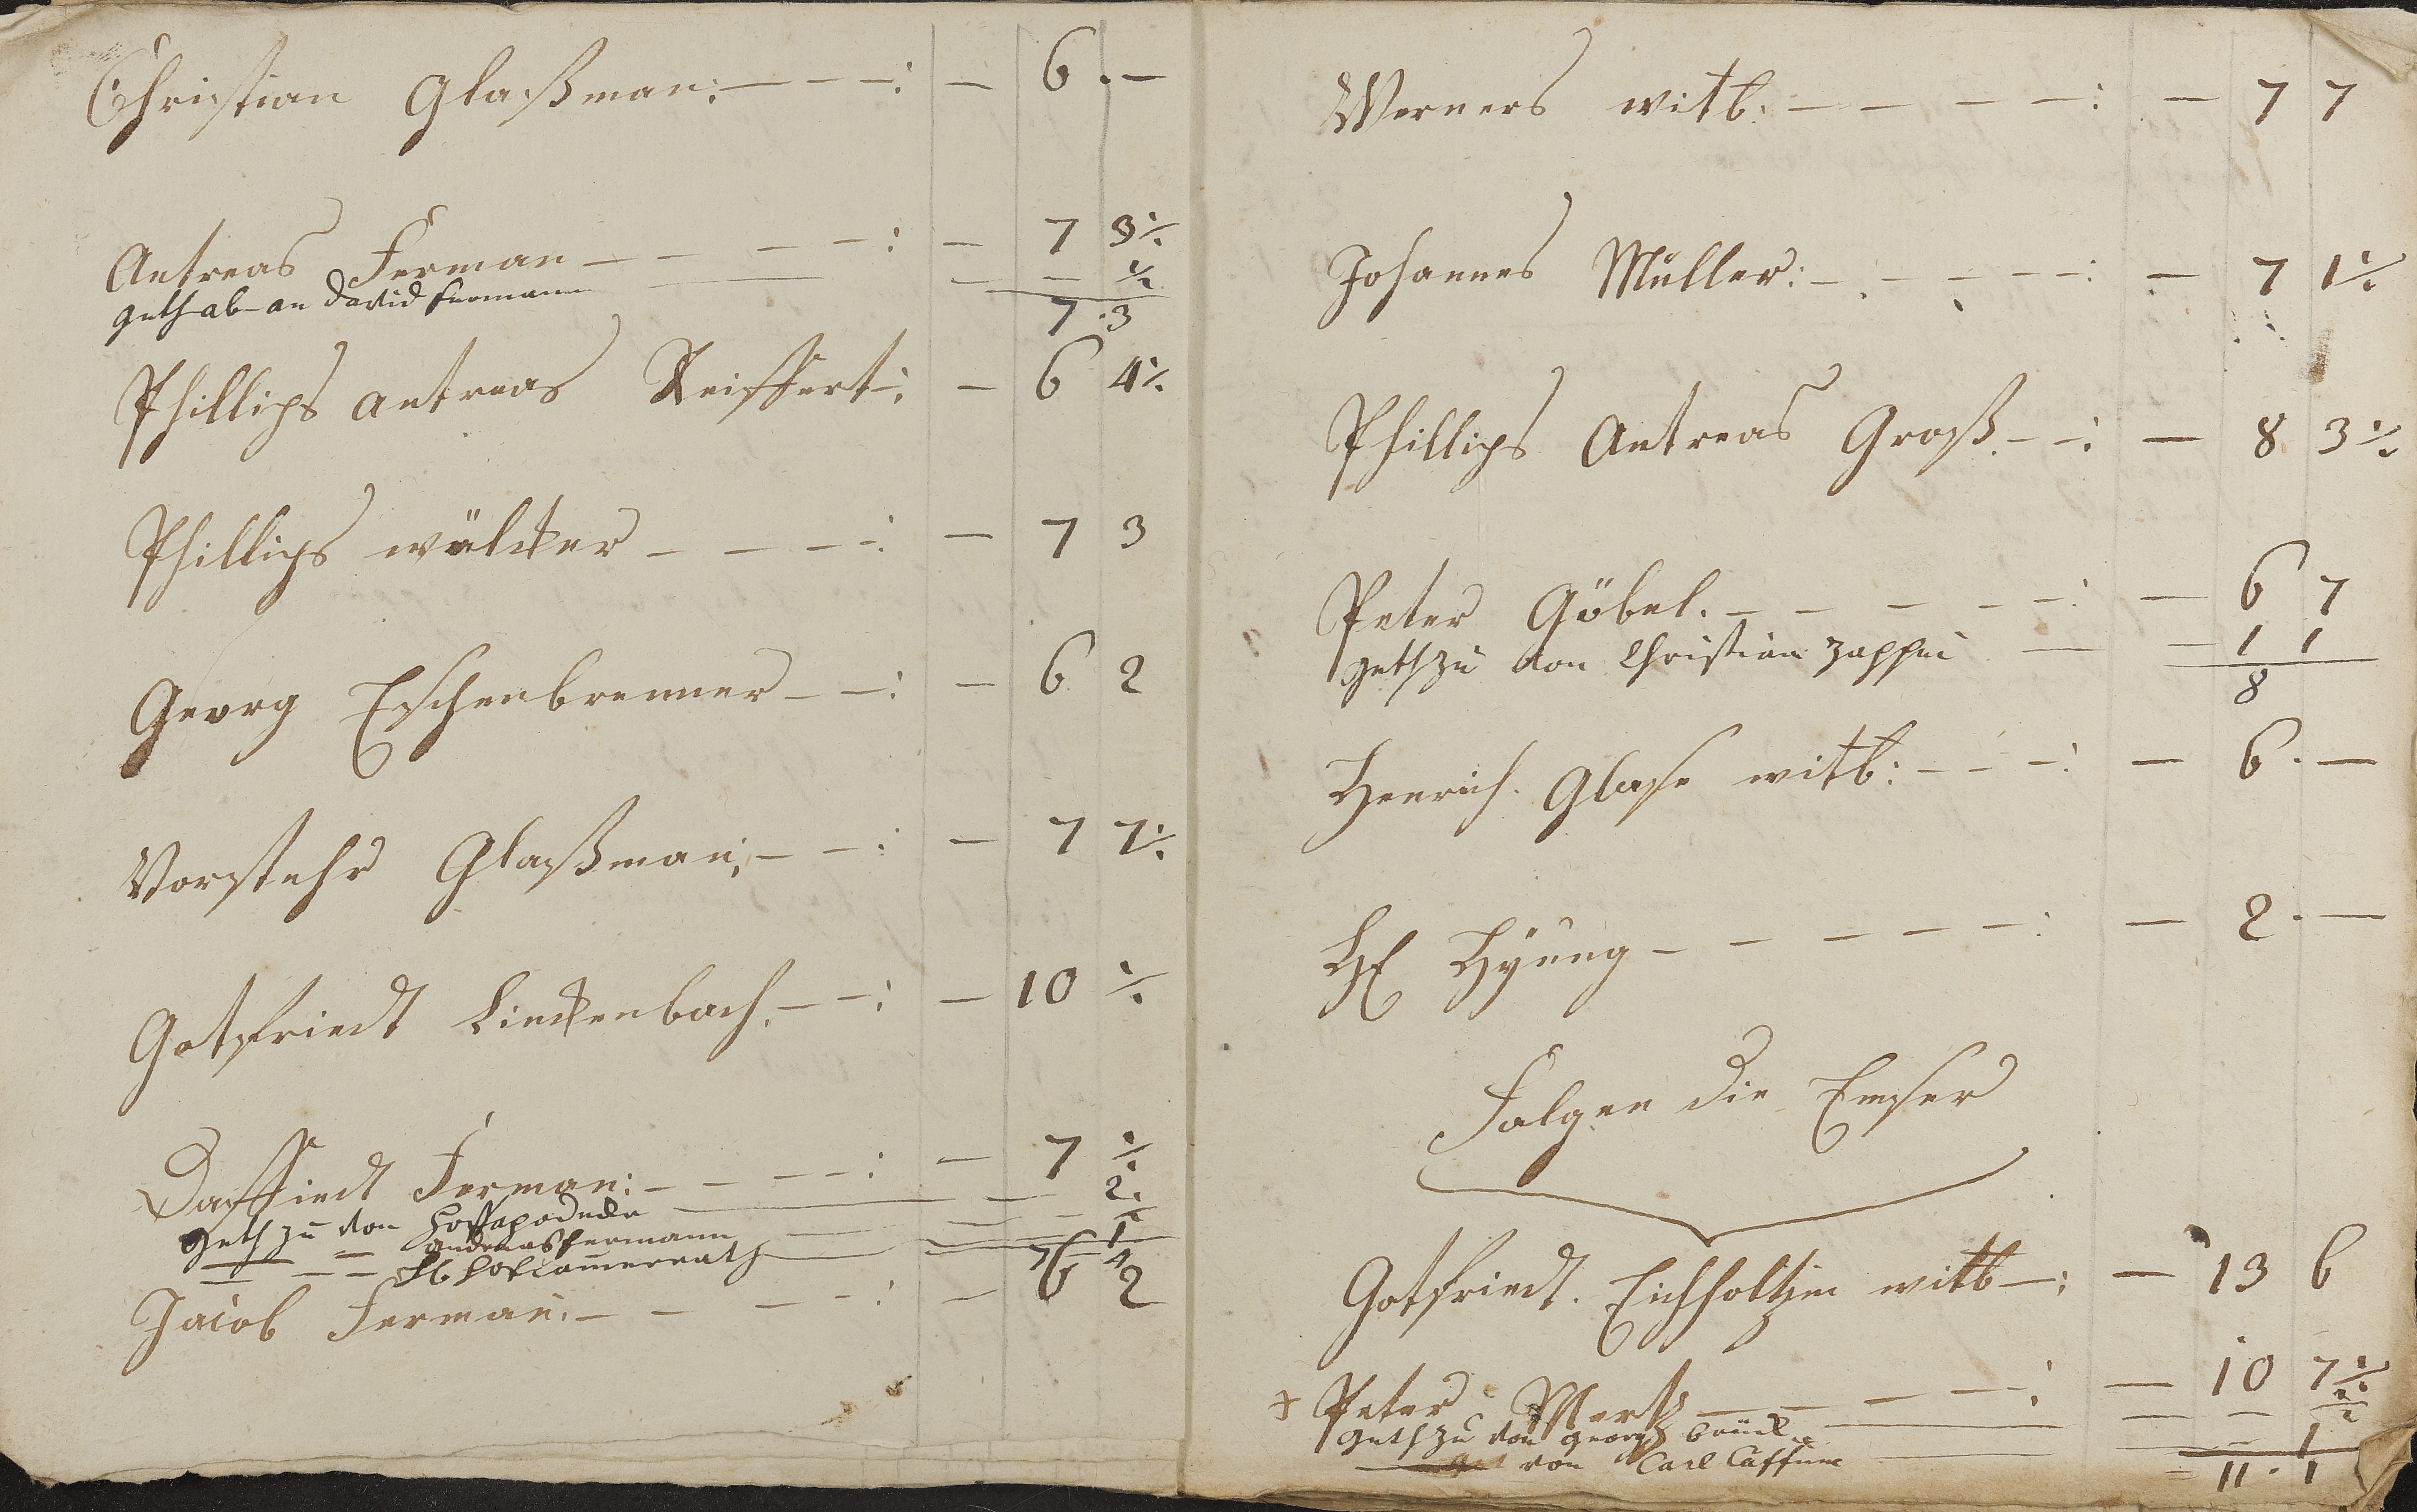 Christian Glaßman: — — —: — 6 . —
Antreas Ferman — — — —: — 7 3½
geth ab an David fermann — — — ½
7 . 3
Phillips antreas Reiffert: — 6 4½
Phillips wälcker — — — —: — 7 3
Georg Eschenbrenner — —: — 6 2
Vorstehr Glaßman: — —: — 7 7½
Gotfriedt Linckenbach. — —: — 10 ½
Daffiedt Ferman: — — — —: — 7 ½
geth zu von — 2
— — andreas fermann — ½
— — hofcammerrath — 1
7 4
Jacob Ferman. — — — —: — 6 2
Werners witb: — — — —: — 7 7
Johannes Müller: — — — —: — 7 1½
Phillips Antreas Groß. — —: — 8 3½
Peter Göbel. — — — — —: — 6 7
geth zu von Christian Zapfen — — 1 1
8
Henrich. Glase witb: — — —: — 6 . —
H — — — — —: — 2 . —
Folgen die Emser
Gotfriedt. Eichholtzin witb —: — 13 6
Peter Mertz — — — —: — 10 7½
geth zu von georg — — ½
von Carl — 1
11 . 1